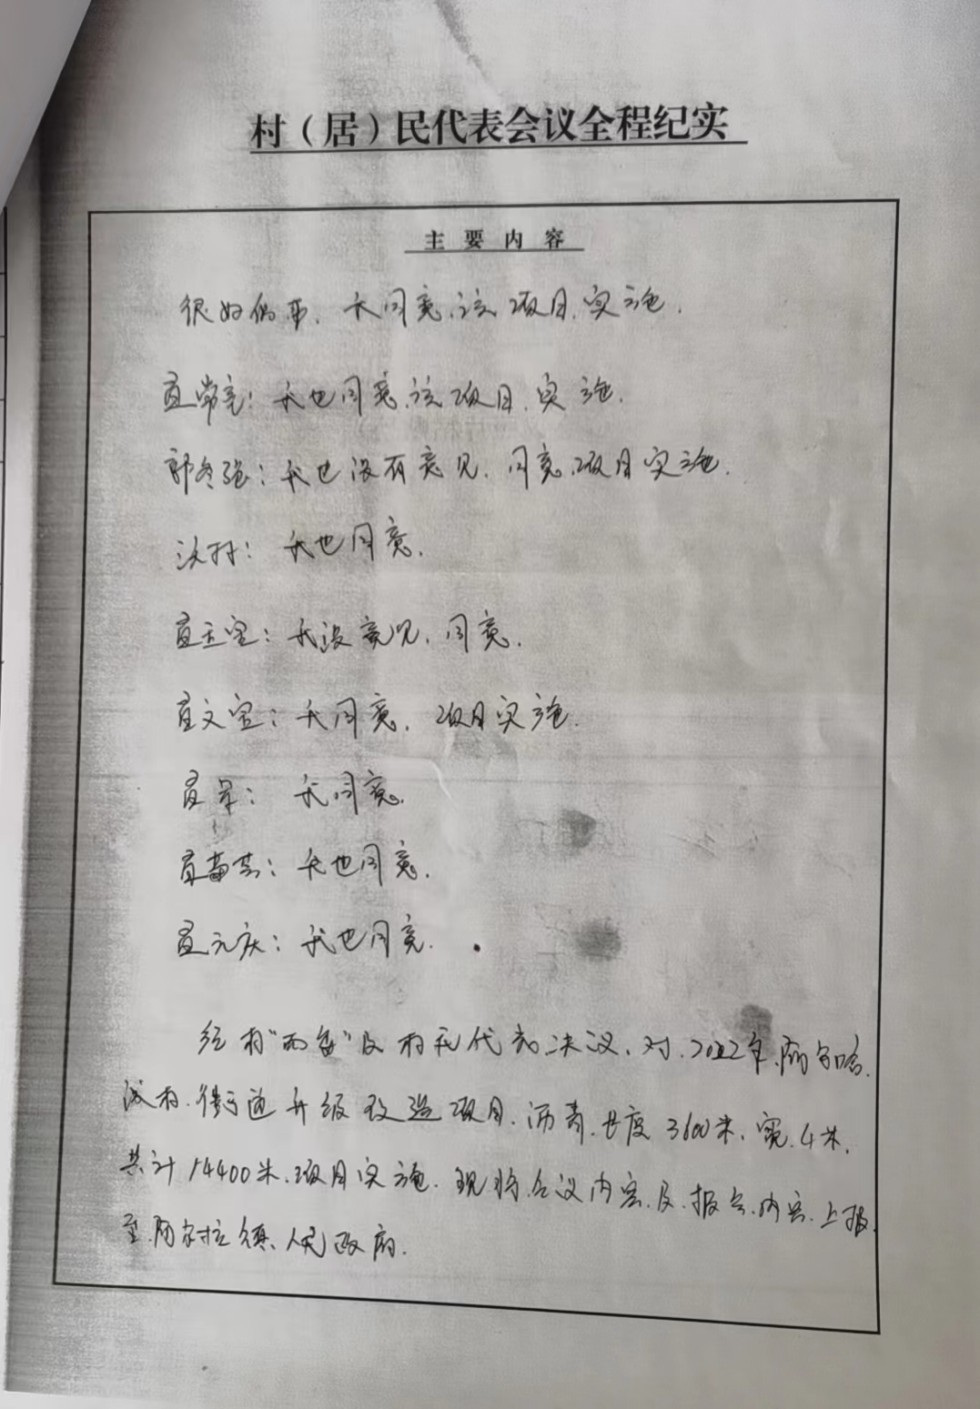 村（居）民代表会议全程纪实
主要内容
很好的事，我同意该项目实施。
孟常亮：我也同意该项目实施。
郭冬强：我也没有意见，同意项目实施。
我也同意。
孟玉宝：我没意见，同意。
孟文宝：我同意，项目实施。
孟军：我同意。
我也同意。
孟元庆：我也同意.
经村“两委”及村民代表决议，对2022年
村街道升级改造项目，沥青长度3600米，宽4米，
共计14400米，项目实施，现将会议内容及报告内容上报
至阿尔拉镇人民政府.